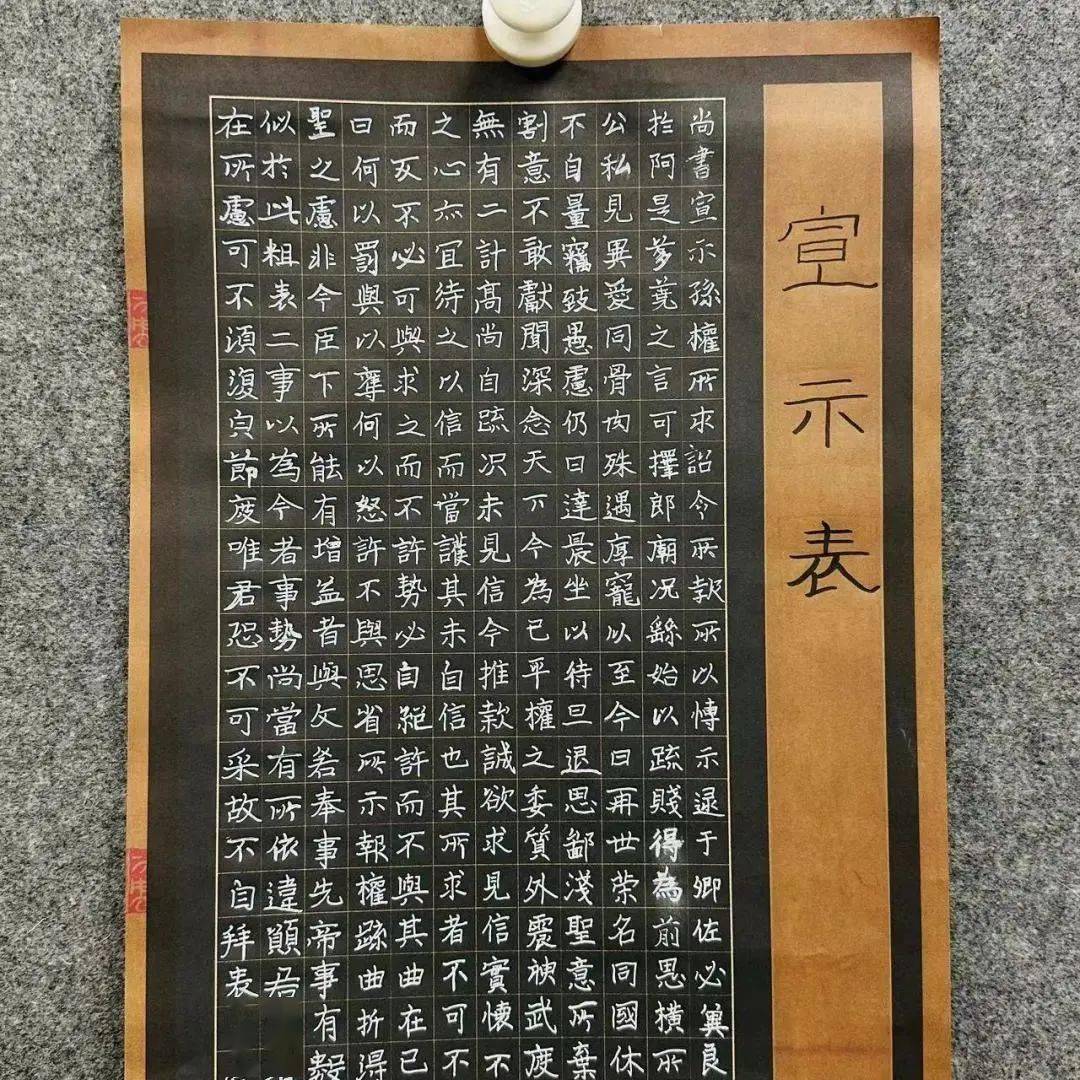 宣示表
尚書宣示孫權所求詔令所報所以博示逮于卿佐必冀良
於阿是芻蕘之言可擇郎廟况繇始以疏賤得為前恩橫所
公私見異愛同骨肉殊遇厚寵以至今日再世荣名同國休
不自量竊致愚慮仍日達晨坐以待旦退思鄙淺聖意所棄
割意不敢獻聞深念天下今為已平權之委質外震神武度
無有二計高尚自疏况未見信今推款誠欲求見信實懷不
之心亦宜待之以信而當護其未自信也其所求者不可不
而反不必可與求之而不許勢必自絕許而不與其曲在已
曰何以罰與以奪何以怒許不與思省所示報權疏曲折得
聖之慮非今臣下所能有增益者與文若奉事先帝事有數
似於此粗表二事以為今者事勢尚當有所依違願君
在所慮可不須復貞節度唯君恐不可采故不自拜表